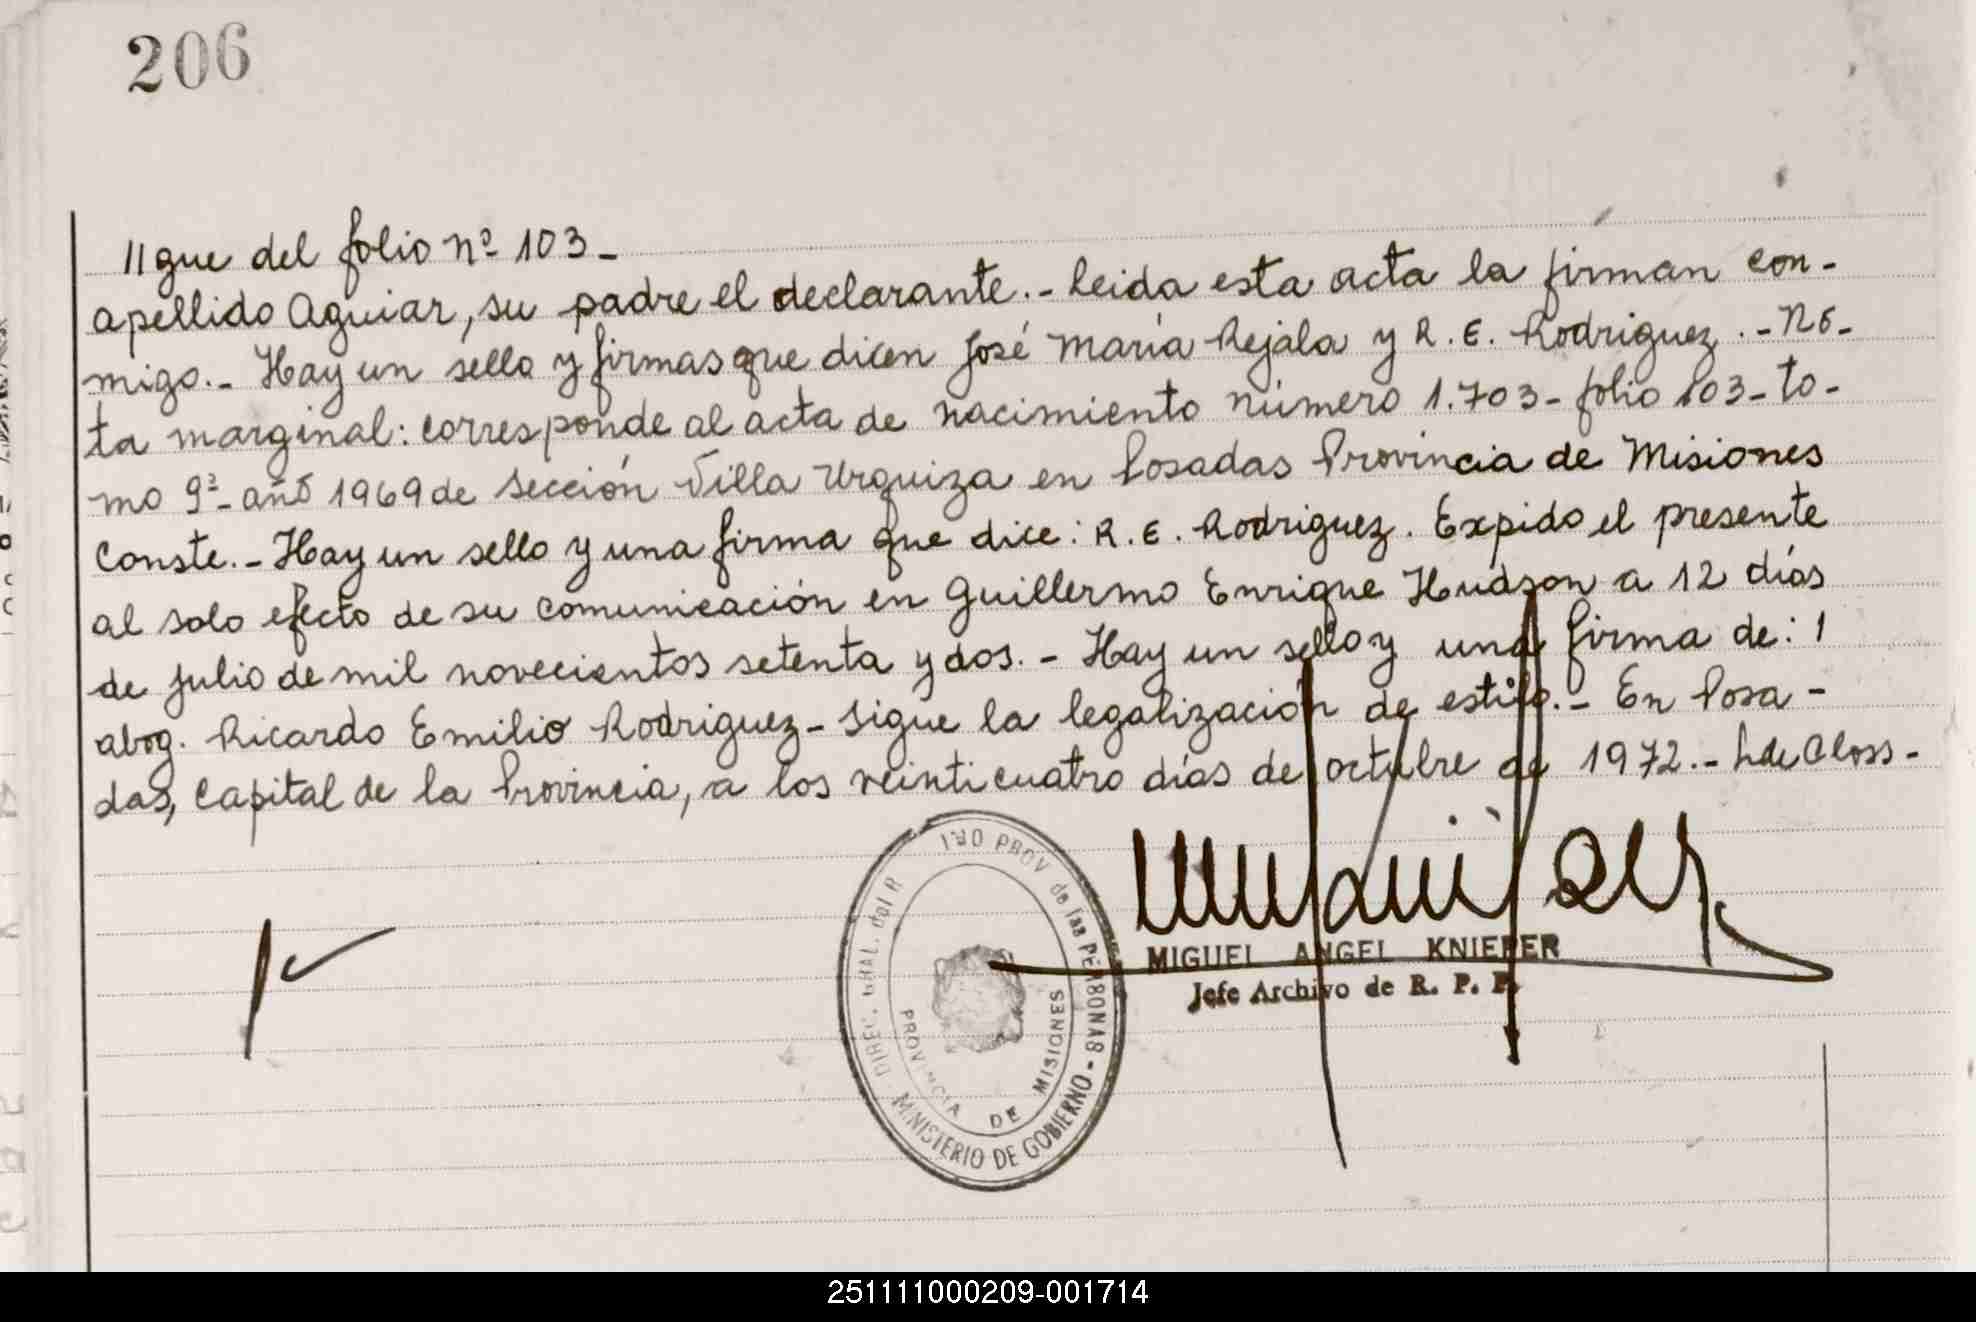 206
llgue del folio nº 103-
apellido Aguiar, su padre el declarante.- Leida esta acta la firman con-
migo.- Hay un sello y firmas que dicen José María Rejala y R. E. Rodriguez.- No-
ta marginal: corresponde al acta de nacimiento número 1.703- folio 103- to-
mo 9º- año 1969 de sección Villa Urquiza en Posadas Provincia de Misiones
Conste.- Hay un sello y una firma que dice: R. E. Rodriguez. Expido el presente
al solo efecto de su comunicación en Guillermo Enrique Hudson a 12 días
de julio de mil novecientos setenta y dos.- Hay un sello y una firma de:
abog. Ricardo Emilio Rodriguez- Sigue la legalización de estilo.- En Posa-
das, Capital de la Provincia, a los veinticuatro días de octubre de 1972.-
DIREC. GRAL. del R PROV de las PERSONAS - MINISTERIO DE GOBIERNO
PROVINCIA DE MISIONES
MIGUEL ANGEL KNIEPER
Jefe Archivo de R. P. P.
251111000209-001714